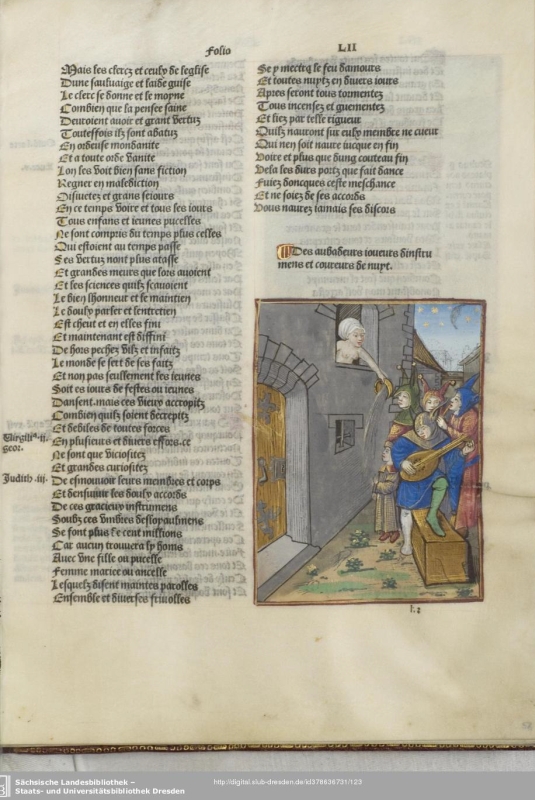 Folio
LII
Mais les clercz et ceulx de leglise
Dune sauluaige et laide guise
Le clerc se donne et le moyne
Combien que la pensee saine
Deuroient auoir et grant vertuz
Toutesfois ilz sont abatuz
En ordeuse mondanite
Et a toute orde vanite
Lon les voit bien sans fiction
Regner en malediction
Oisiuetez et grans seiours
En ce temps voire et tous les iours
Tous enfans et ieunes pucelles
Ne sont compris du temps plus celles
Qui estoient au temps passe
Ses vertuz nont plus
Et grandes meurs que lors auoient
Et les sciences quilz scauoient
Le bien lhonneur et le maintien
Le doulx parler et lentretien
Est cheut et en elles fini
Et maintenant est diffini
De hors pechez vilz et infaitz
Le monde se sert de ses faitz
Et non pas seullement les ieunes
Soit es iours de festes ou ieunes
Dansent. mais ces vieux accropitz
Combien quilz soient decrepitz
Et debiles de toutes forces
En plusieurs et divers effors.ce
Ne sont que viciositez
Et grandes curiositez
De esmouuoir leurs membres et corps
Et densuiuir les doulx accords
De ces gracieux instrumens
Soubz ces vmbres
Se font plus de cent millions
Car aucun trouuera ly homs
Auec vne fille ou pucelle
Femme mariee ou ancelle
Lesquelz disent maintes parolles
Ensemble et diuerses friuolles
Virgilius .ii.
geor.
Judith .iii.
Se y mectra le feu damours
Et toutes nuytz en diuers iours
Apres seront tous tormentez
Tous incensez et guementez
Et liez par telle rigueur
Quilz nauront sur eulx membre ne cueur
Qui nen soit naure iucque en fin
Voire et plus que dung couteau fin
Vela les durs portz que fait dance
Fuiez doncques ceste meschance
Et ne soiez de ses accords
Vous naurez iamais ses discors
Des aubadeurs ioueurs dinstru
mens et coureurs de nuyt.
Sächsische Landesbibliothek –
Staats- und Universitätsbibliothek Dresden
http://digital.slub-dresden.de/id378836731/123